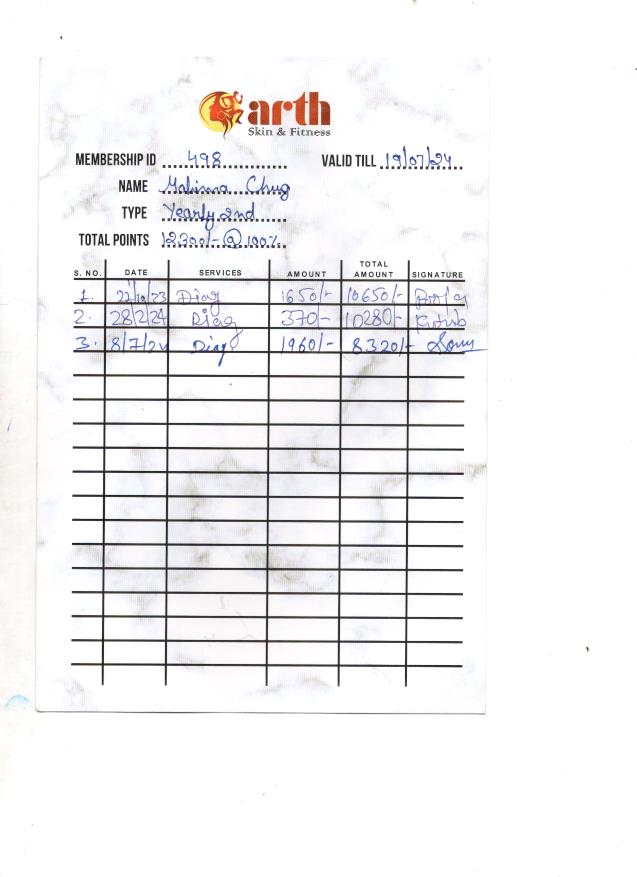 arth
Skin & Fitness
MEMBERSHIP ID 498 VALID TILL 19/07/24
NAME Mahima Chug
TYPE Yearly 2nd
TOTAL POINTS 12300/- @ 100%
S. NO. DATE SERVICES AMOUNT TOTAL AMOUNT SIGNATURE
1. 22/10/23 Diag 1650/- 10650/-
2. 28/2/24 Diag 370/- 10280/-
3. 8/7/24 Diag 1960/- 8320/-